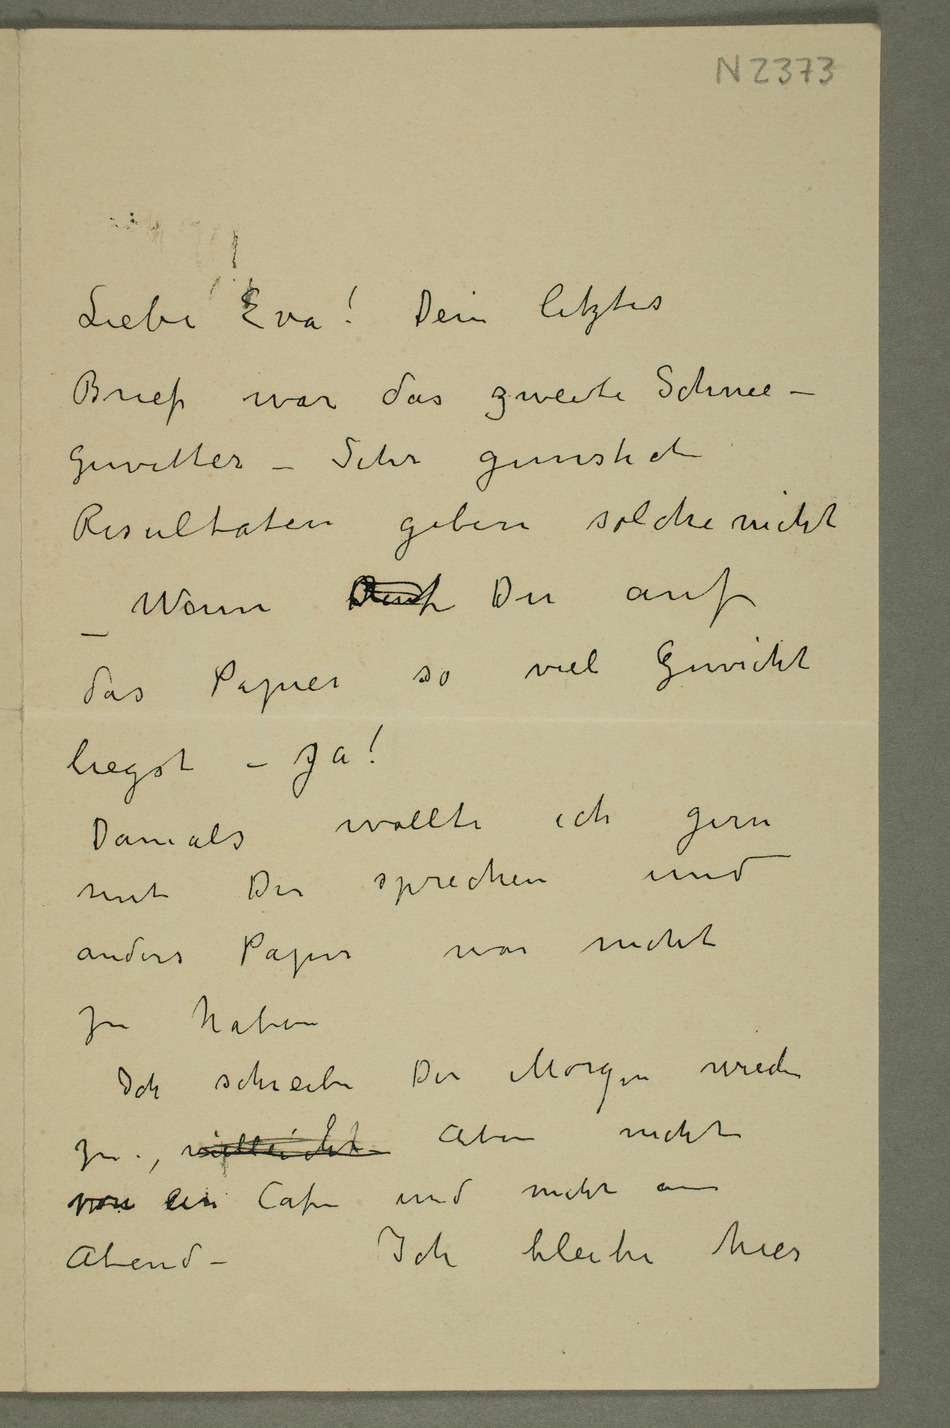 N 2373
Liebe Eva! Dein letztes
Brief war das zweite Schnee –
Gewitter – Sehr gunstich
Resultaten geben solche nicht
– Wenn Du auf
das Papier so viel Gewicht
liegst – ja!
Damals wollte ich gern
mit Dir sprechen und
anders Papier war nicht
zu haben
Ich schreibe Dir Morgen wieder
zu., vielleicht Aber nicht
von ein Cafe und nicht am
Abend – Ich bleibe hier